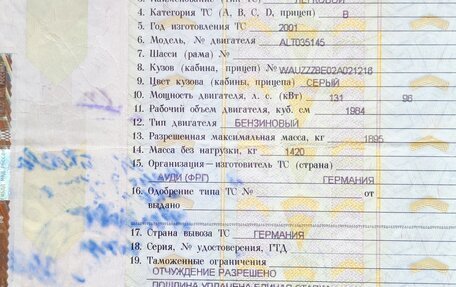 3. Наименование (тип ТС) ЛЕГКОВОЙ
4. Категория ТС (А, В, С, D, прицеп) В
5. Год изготовления ТС 2001
6. Модель, № двигателя ALT035145
7. Шасси (рама) №
8. Кузов (кабина, прицеп) № WAUZZZ8E02A021216
9. Цвет кузова (кабины, прицепа) СЕРЫЙ
10. Мощность двигателя, л. с. (кВт) 131 96
11. Рабочий объем двигателя, куб. см 1984
12. Тип двигателя БЕНЗИНОВЫЙ
13. Разрешенная максимальная масса, кг 1895
14. Масса без нагрузки, кг 1420
15. Организация—изготовитель ТС (страна)
АУДИ (ФРГ) ГЕРМАНИЯ
16. Одобрение типа ТС № от
выдано
17. Страна вывоза ТС ГЕРМАНИЯ
18. Серия, № удостоверения, ГТД
19. Таможенные ограничения
ОТЧУЖДЕНИЕ РАЗРЕШЕНО
ПОШЛИНА УПЛАЧЕНА